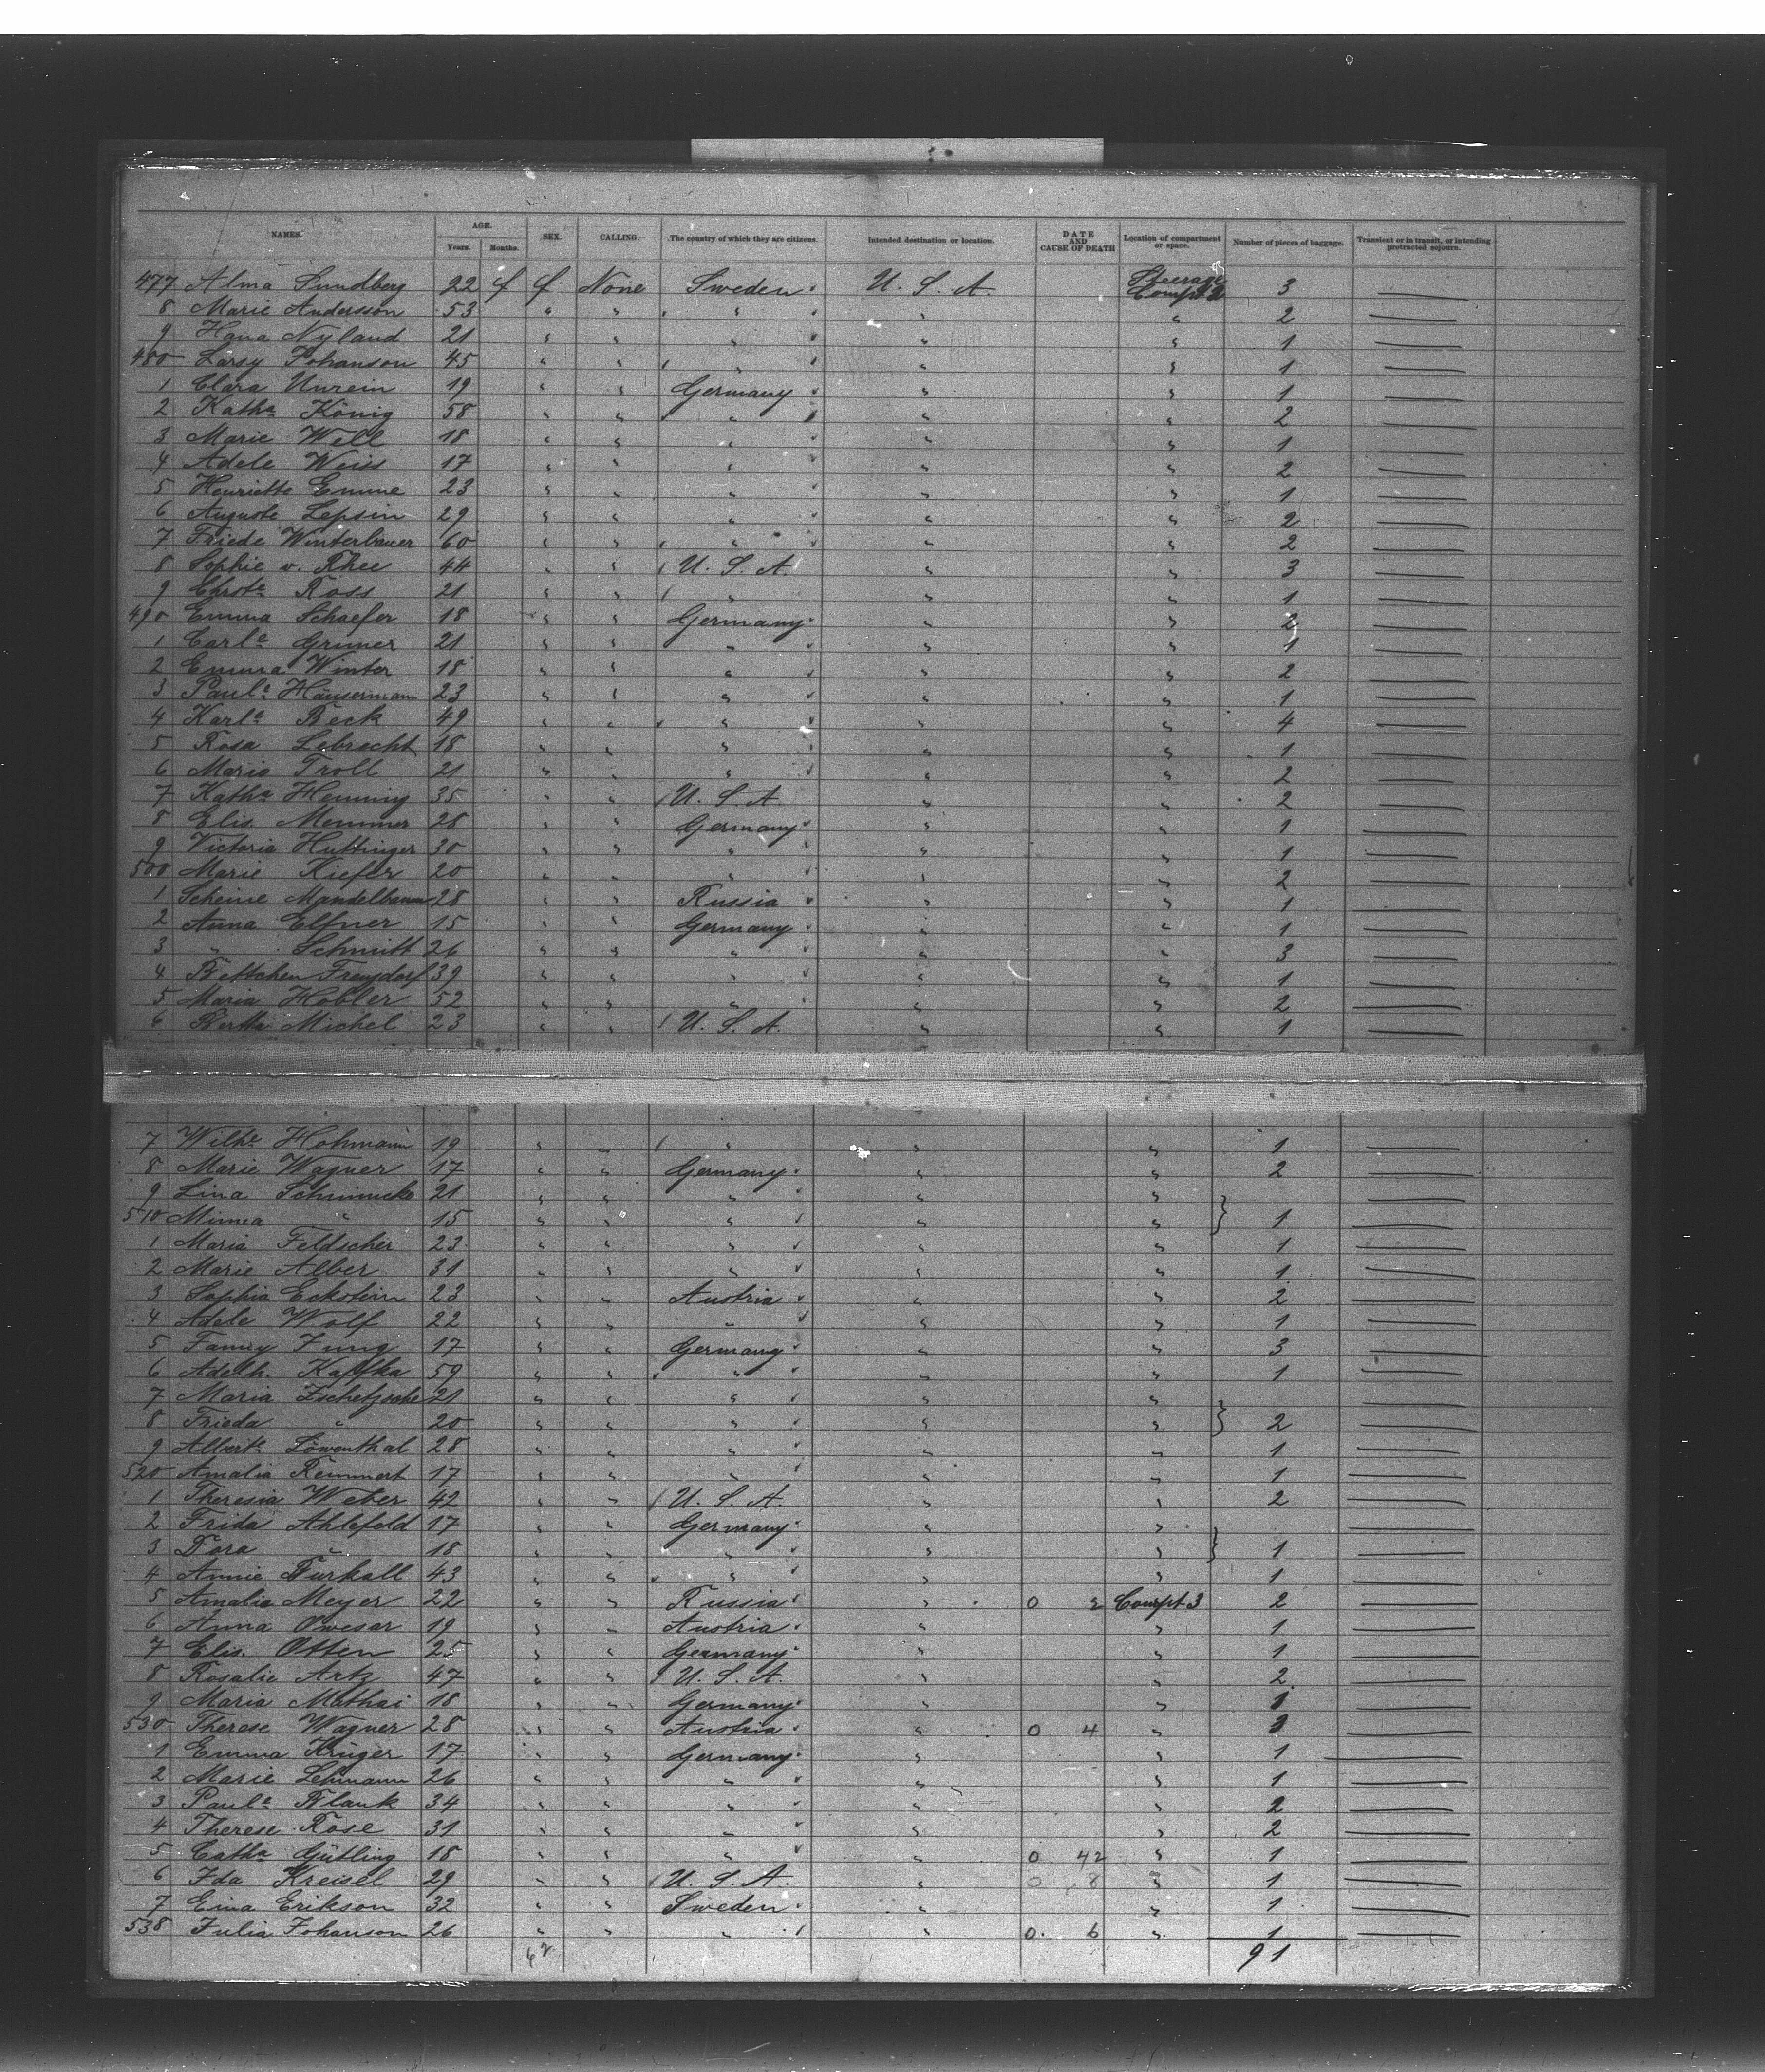 NAMES. AGE. Years. Months. SEX. CALLING. The country of which they are citizens. Intended destination or location. DATE AND CAUSE OF DEATH Location of compartment or space. Number of pieces of baggage. Transient or in transit, or intending protracted sojourn.
477 Alma Sundberg 22 f f None Sweden U. S. A. Steerage Compt 2 3 —
8 Marie Andersson 53 " " " " " 2 —
9 Hana Nyland 21 " " " " " 1 —
480 Larsy Johanson 45 " " " " " 1 —
1 Clara Unrein 19 " " Germany " " 1 —
2 Katha König 58 " " " " " 2 —
3 Marie Well 18 " " " " " 1 —
4 Adele Weiss 17 " " " " " 2 —
5 Henriette Emme 23 " " " " " 1 —
6 Auguste Lepsin 29 " " " " " 2 —
7 Friede Winterbauer 60 " " " " " 2 —
8 Sophie v. Rhee 44 " " U. S. A. " " 3 —
9 Chrste Ross 21 " " " " " 1 —
490 Emma Schaefer 18 " " Germany " " 2 —
1 Carle Gruner 21 " " " " " 1 —
2 Emma Winter 18 " " " " " 2 —
3 Paule Häusermann 23 " " " " " 1 —
4 Karle Beck 49 " " " " " 4 —
5 Rosa Lebrecht 18 " " " " " 1 —
6 Maria Troll 21 " " " " " 2 —
7 Katha Henning 35 " " U. S. A. " " 2 —
8 Elis. Memmer 28 " " Germany " " 1 —
9 Victoria Huttinger 30 " " " " " 1 —
500 Marie Kiefer 20 " " " " " 2 —
1 Scheine Mandelbaum 28 " " Russia " " 1 —
2 Anna Elfner 15 " " Germany " " 1 —
3 " Schmitt 26 " " " " " 3 —
4 Bettchen Freydorf 39 " " " " " 1 —
5 Maria Hobler 52 " " " " " 2 —
6 Bertha Michel 23 " " U. S. A. " " 1 —
7 Wilhe Hohmann 19 " " " " " 1 —
8 Marie Wagner 17 " " Germany " " 2 —
9 Lina Schimmcke 21 " " " " " —
510 Minna " 15 " " " " " 1 —
1 Maria Feldscher 23 " " " " " 1 —
2 Marie Alber 31 " " " " " 1 —
3 Sophia Eckstein 23 " " Austria " " 2 —
4 Adele Wolf 22 " " " " " 1 —
5 Fanny Jung 17 " " Germany " " 3 —
6 Adelh. Kaffka 59 " " " " " 1 —
7 Maria Zschetzsche 21 " " " " " —
8 Frieda " 20 " " " " " 2 —
9 Alberte Löwenthal 28 " " " " " 1 —
520 Amalia Remmert 17 " " " " " 1 —
1 Theresia Weber 42 " " U. S. A. " " 2 —
2 Frida Ahlefeld 17 " " Germany " " —
3 Dora " 18 " " " " " 1 —
4 Annie Burkall 43 " " " " " 1 —
5 Amalia Meyer 22 " " Russia " 0 2 Compt 3 2 —
6 Anna Owesar 19 " " Austria " " 1 —
7 Elis. Otten 25 " " Germany " " 1 —
8 Rosalie Artz 47 " " U. S. A. " " 2 —
9 Maria Mathai 18 " " Germany " " 1 —
530 Therese Wagner 28 " " Austria " 0 4 " 3 —
1 Emma Krüger 17 " " Germany " " 1 —
2 Marie Lehmann 26 " " " " " 1 —
3 Paule Blank 34 " " " " " 2 —
4 Therese Rose 31 " " " " " 2 —
5 Catha Gütling 18 " " " " 0 42 " 1 —
6 Ida Kreisel 29 " " U. S. A. " 0 8 " 1 —
7 Eina Erikson 32 " " Sweden " " 1 —
538 Julia Johanson 26 " " " " 0. 6 " 1 —
62 91